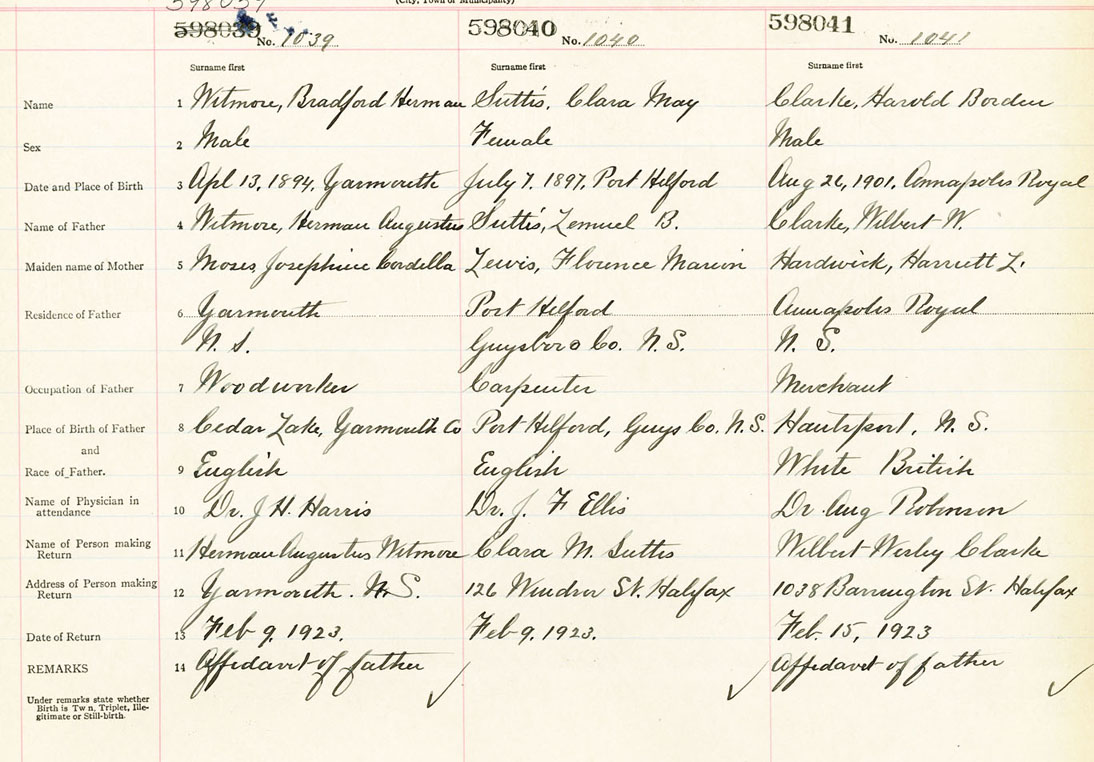 598039
(City, Town or Municipality)
598039 No. 1039 598040 No. 1040 598041 No. 1041
Surname first Surname first Surname first
Name 1 Witmore, Bradford Herman Suttis, Clara May Clarke, Harold Borden
Sex 2 Male Female Male
Date and Place of Birth 3 Apl 13, 1894, Yarmouth July 7, 1897, Port Hilford Aug 26, 1901, Annapolis Royal
Name of Father 4 Witmore, Herman Augustus Suttis, Lemuel B. Clarke, Wilbert W.
Maiden name of Mother 5 Moses, Josephine Cordella Lewis, Florence Marion Hardwick, Harriett L.
Residence of Father 6 Yarmouth Port Hilford Annapolis Royal
N. S. Guysboro Co. N. S. N. S.
Occupation of Father 7 Woodworker Carpenter Merchant
Place of Birth of Father 8 Cedar Lake, Yarmouth Co Port Hilford, Guys Co. N. S. Hantsport, N. S.
and
Race of Father. 9 English English White British
Name of Physician in
attendance 10 Dr. J H. Harris Dr. J. F Ellis Dr. Aug Robinson
Name of Person making
Return 11 Herman Augustus Witmore Clara M. Suttis Wilbert Wesley Clarke
Address of Person making
Return 12 Yarmouth. N. S. 126 Windsor St. Halifax 1038 Barrington St. Halifax
Date of Return 13 Feb 9, 1923. Feb 9, 1923. Feb. 15, 1923
REMARKS 14 Affidavit of father Affidavit of father
Under remarks state whether
Birth is Twn, Triplet, Ille-
gitimate or Still-birth.